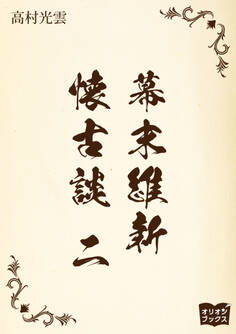 高村光雲
幕末維新
懐古談 二
オリオン
ブックス